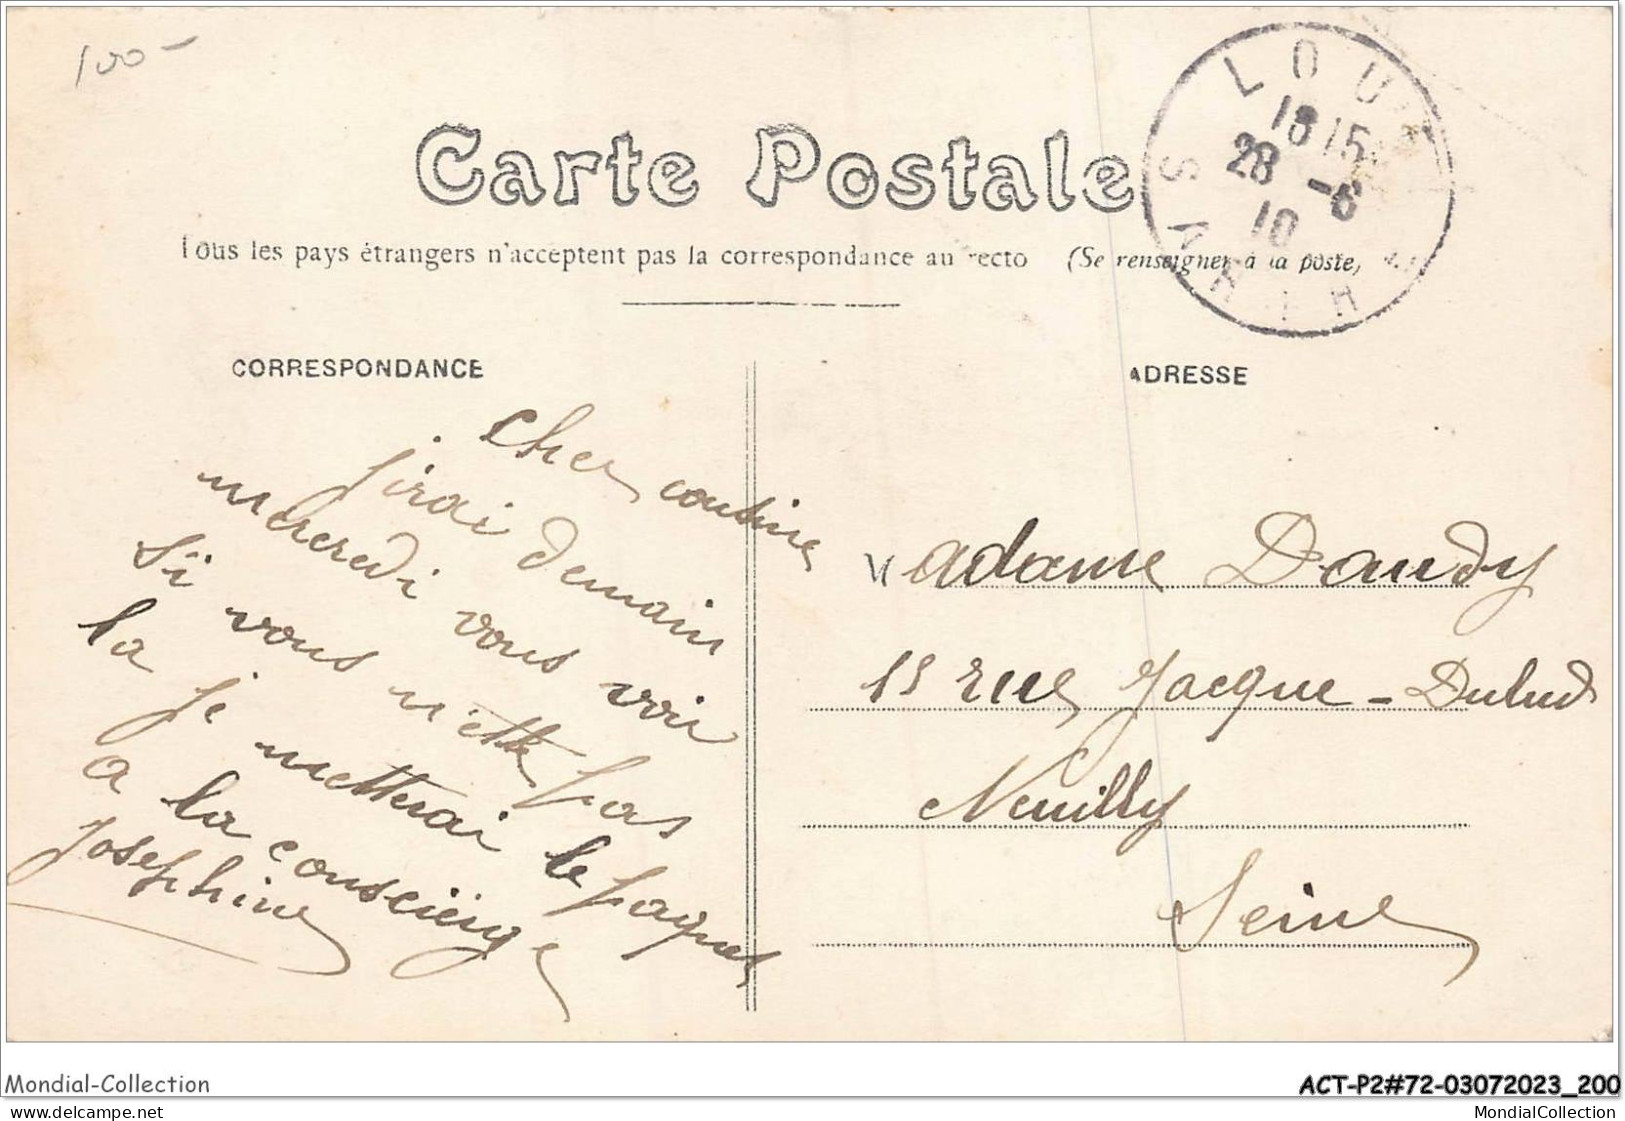 100 -
Carte Postale
Tous les pays étrangers n'acceptent pas la correspondance au recto (Se renseigner à la poste)
LOU
SARTHE
18 15
28 -6
10
CORRESPONDANCE
ADRESSE
Cher cousine
j'irai demain
mercredi vous voir
Si vous n'ette pas
la je metterai le paquet
a la conscièrge
Josephine
Madame Daudy
15 rue Jacque-Dulud
Neuilly
Seine
Mondial-Collection
ACT-P2#72-03072023_200
www.delcampe.net
MondialCollection